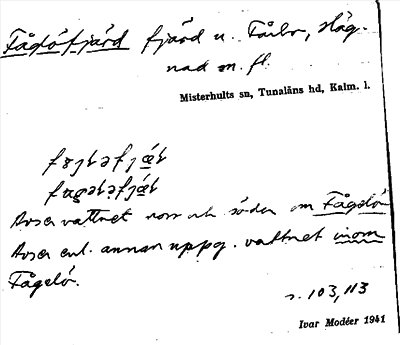 Fågelöfjärd fjärd n. Fårbo, Håg-
nad m. fl.
Misterhults sn, Tunaläns hd, Kalm. l.
Avser vattnet norr och söder om Fågelö.
Avser enl. annan uppg. vattnet inom
Fågelö.
s. 103, 113
Ivar Modéer 1941